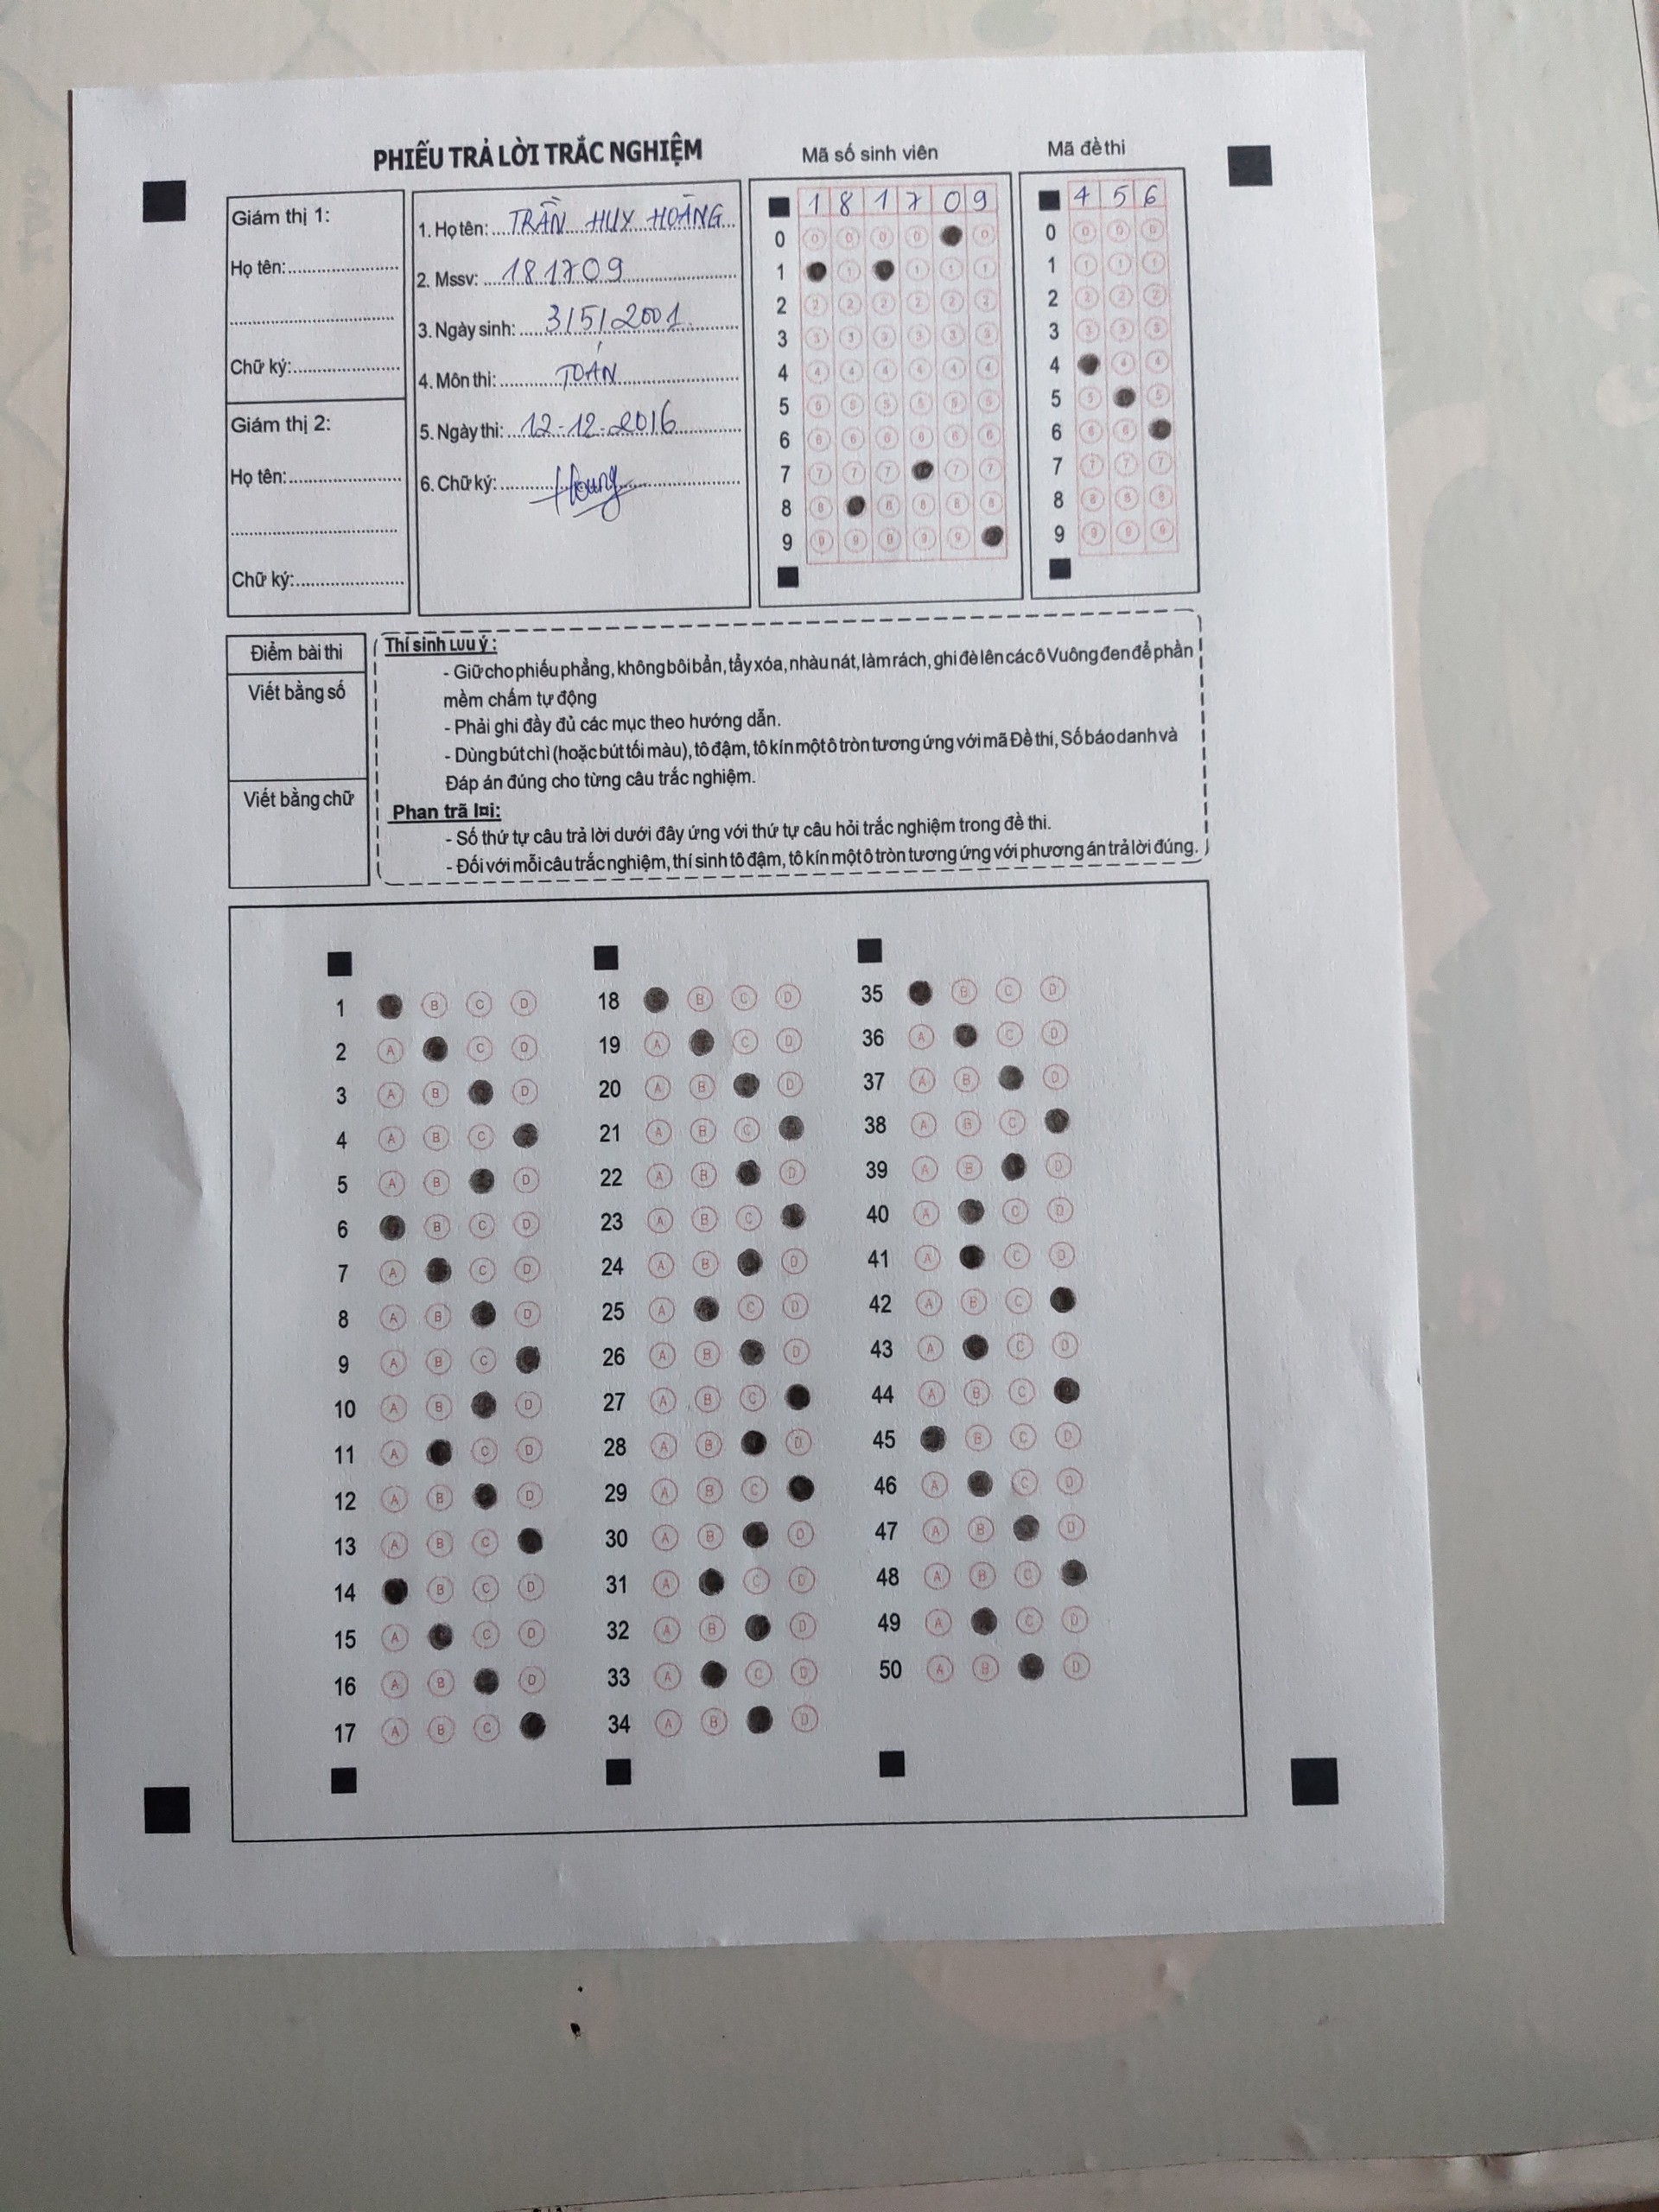 PHIẾU TRẢ LỜI TRẮC NGHIỆM
Mã số sinh viên
Mã đề thi
Giám thị 1:
Họ tên:
Chữ ký:
Giám thị 2:
Họ tên:
Chữ ký:
1. Họ tên: TRẦN HUY HOÀNG
2. Mssv: 181709
3. Ngày sinh: 3/5/2001
4. Môn thi: TOÁN
5. Ngày thi: 12-12-2016
6. Chữ ký: Hoang
1 8 1 7 0 9
0 0 0 0 0 0
1 1 1 1 1
2 2 2 2 2 2 2
3 3 3 3 3 3 3
4 4 4 4 4 4 4
5 5 5 5 5 5 5
6 6 6 6 6 6 6
7 7 7 7 7 7
8 8 8 8 8 8
9 9 9 9 9 9
4 5 6
0 0 0 0
1 1 1 1
2 2 2 2
3 3 3 3
4 4 4
5 5 5
6 6 6
7 7 7 7
8 8 8 8
9 9 9 9
Điểm bài thi
Viết bằng số
Viết bằng chữ
Thí sinh Lưu ý :
- Giữ cho phiếu phẳng, không bôi bẩn, tẩy xóa, nhàu nát, làm rách, ghi đè lên các ô Vuông đen để phần
mềm chấm tự động
- Phải ghi đầy đủ các mục theo hướng dẫn.
- Dùng bút chì (hoặc bút tối màu), tô đậm, tô kín một ô tròn tương ứng với mã Đề thi, Số báo danh và
Đáp án đúng cho từng câu trắc nghiệm.
Phan trã l¤i:
- Số thứ tự câu trả lời dưới đây ứng với thứ tự câu hỏi trắc nghiệm trong đề thi.
- Đối với mỗi câu trắc nghiệm, thí sinh tô đậm, tô kín một ô tròn tương ứng với phương án trả lời đúng.
1 B C D
2 A C D
3 A B D
4 A B C
5 A B D
6 B C D
7 A C D
8 A B D
9 A B C
10 A B D
11 A C D
12 A B D
13 A B C
14 B C D
15 A C D
16 A B D
17 A B C
18 B C D
19 A C D
20 A B D
21 A B C
22 A B D
23 A B C
24 A B D
25 A C D
26 A B D
27 A B C
28 A B D
29 A B C
30 A B D
31 A C D
32 A B D
33 A C D
34 A B D
35 B C D
36 A C D
37 A B D
38 A B C
39 A B D
40 A C D
41 A C D
42 A B C
43 A C D
44 A B C
45 B C D
46 A C D
47 A B D
48 A B C
49 A C D
50 A B D